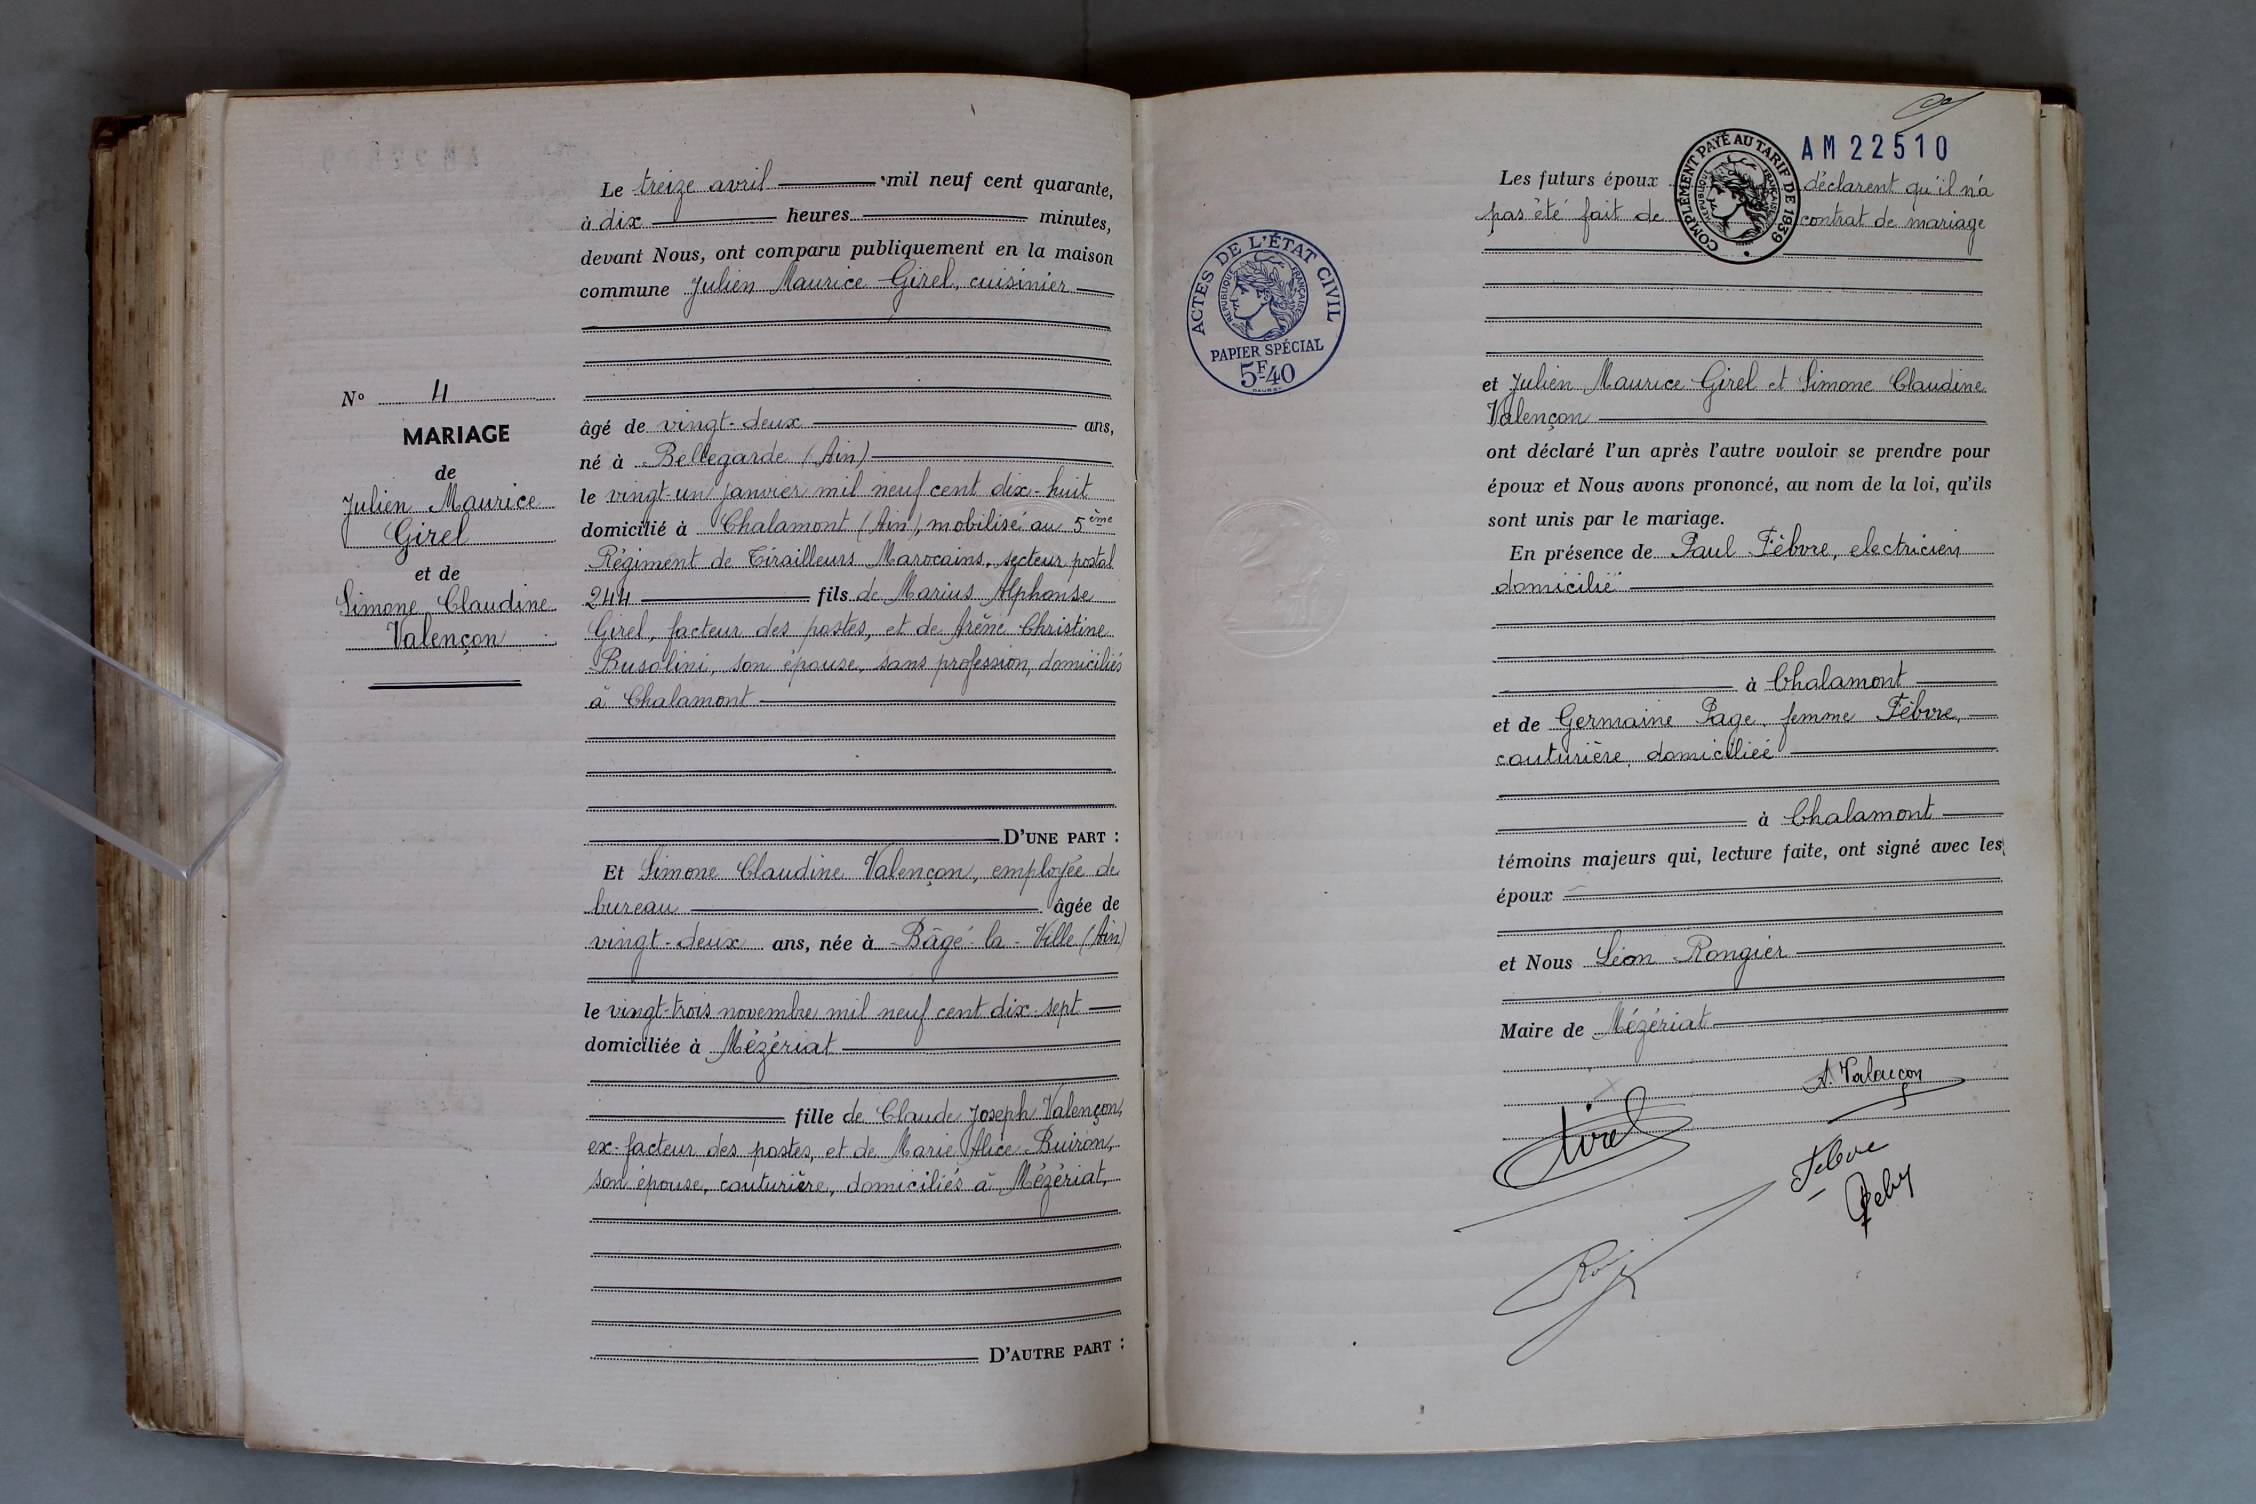 N° 4
MARIAGE
de
Julien Maurice
Girel
et de
Simone Claudine
Valençon
Le treize avril mil neuf cent quarante,
à dix heures minutes,
devant Nous, ont comparu publiquement en la maison
commune Julien Maurice Girel, cuisinier
âgé de vingt-deux ans,
né à Bellegarde (Ain)
le vingt-un janvier mil neuf cent dix-huit
domicilié à Chalamont (Ain), mobilisé au 5ème
Régiment de Tirailleurs Marocains, secteur postal
244 fils de Marius Alphonse
Girel, facteur des postes, et de Irène Christine
Busolini, son épouse, sans profession, domiciliés
à Chalamont
D'UNE PART :
Et Simone Claudine Valençon, employée de
bureau âgée de
vingt-deux ans, née à Bâgé-la-Ville (Ain)
le vingt-trois novembre mil neuf cent dix-sept
domiciliée à Mézériat
fille de Claude Joseph Valençon,
ex-facteur des postes, et de Marie Alice Buiron,
son épouse, couturière, domiciliés à Mézériat,
D'AUTRE PART :
AM 22510
COMPLÉMENT PAYÉ AU TARIF DE 1939
RÉPUBLIQUE FRANÇAISE
ACTES DE L'ÉTAT CIVIL
RÉPUBLIQUE FRANÇAISE
PAPIER SPÉCIAL
5F40
Les futurs époux déclarent qu'il n'a
pas été fait de contrat de mariage
et Julien Maurice Girel et Simone Claudine
Valençon
ont déclaré l'un après l'autre vouloir se prendre pour
époux et Nous avons prononcé, au nom de la loi, qu'ils
sont unis par le mariage.
En présence de Paul Fèbvre, electricien
domicilié
à Chalamont
et de Germaine Page, femme Fèbvre,
couturière, domiciliée
à Chalamont
témoins majeurs qui, lecture faite, ont signé avec les
époux
et Nous Léon Rongier
Maire de Mézériat
S. Valençon
Girel
Febvre